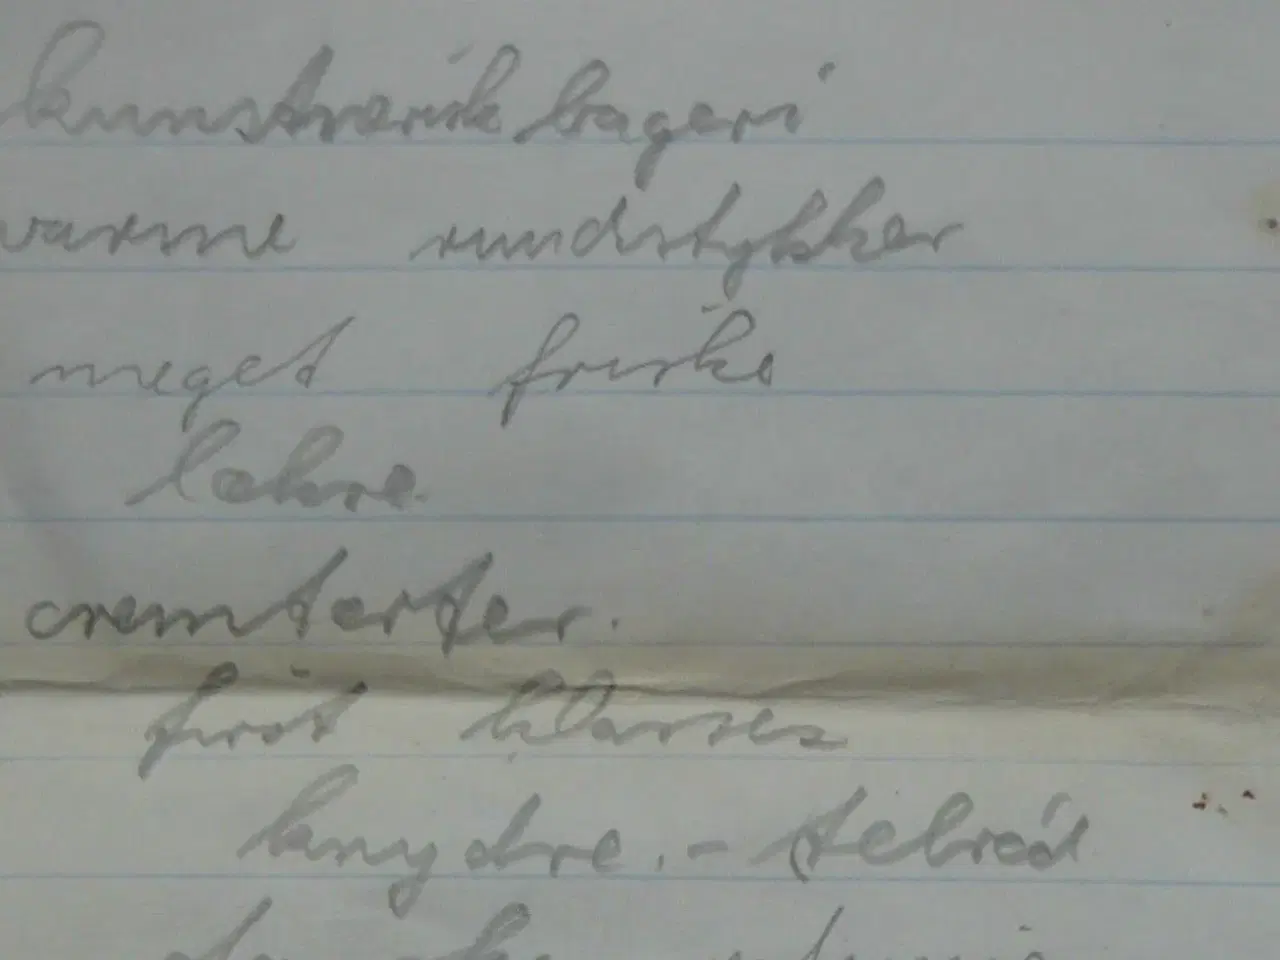 kunstnerisk bageri
varme rundstykker
meget friske
lækre
cremterter.
first klasses
knydre. - tebrød